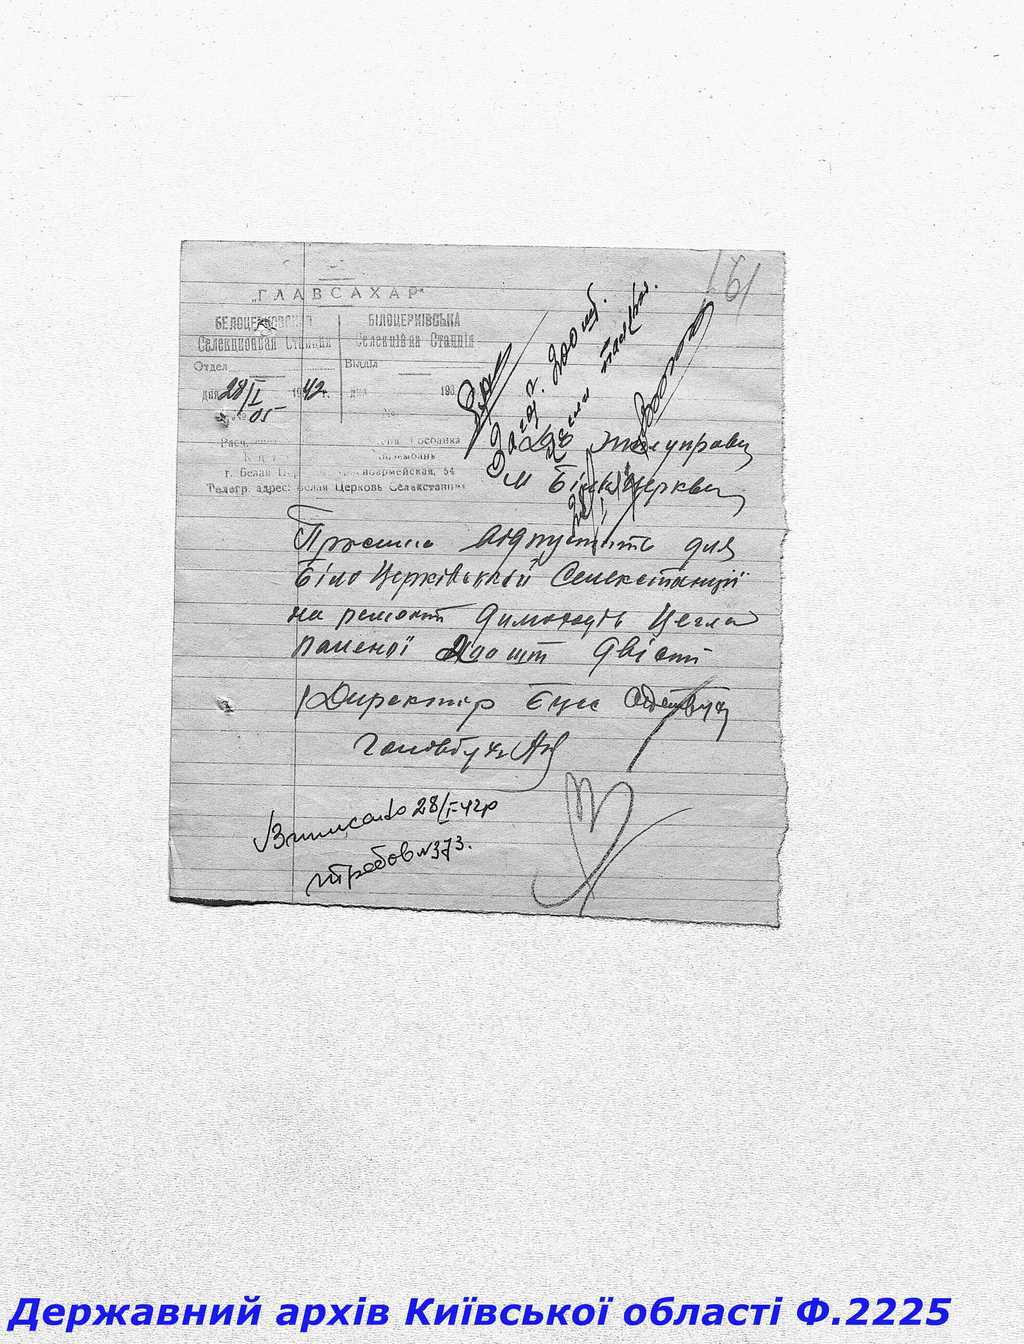 61
„ГЛАВСАХАР"
БЕЛОЦЕРКОВСКАЯ
Селекционная Станция
БІЛОЦЕРКІВСЬКА
Селекційна Станція
Отдел
Відділ
дня 28/I 1942 г.
193
05
Госбанка
г. Белая Церковь, Красноармейская, 54
Телегр. адрес: Белая Церковь Селекстанция
200 шт.
До Жилуправи
м Білої церкви
Прошимо відпустить для
Білоцерківської Селекстанції
на ремонт димоходів Цегли
паленої 200 шт двісті
Директор
Головбух
Виписано 28/I-42р
требов N373.
Державний архів Київської області Ф.2225